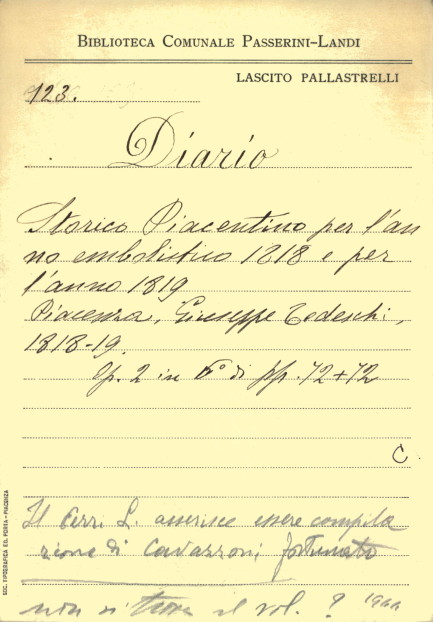 BIBLIOTECA COMUNALE PASSERINI-LANDI
LASCITO PALLASTRELLI
123.
Diario
Storico Piacentino per l'an
no embolistico 1818 e per
l'anno 1819
Piacenza, Giuseppe Tedeschi,
1818-19.
Op. 2 in 6° di pp. 72+72
C
Il Cerri L. asserisce essere compila
zione di Cavazzoni fortunato
non si trova il vol. ?
SOC. TIPOGRAFICA ED. PORTA - PIACENZA